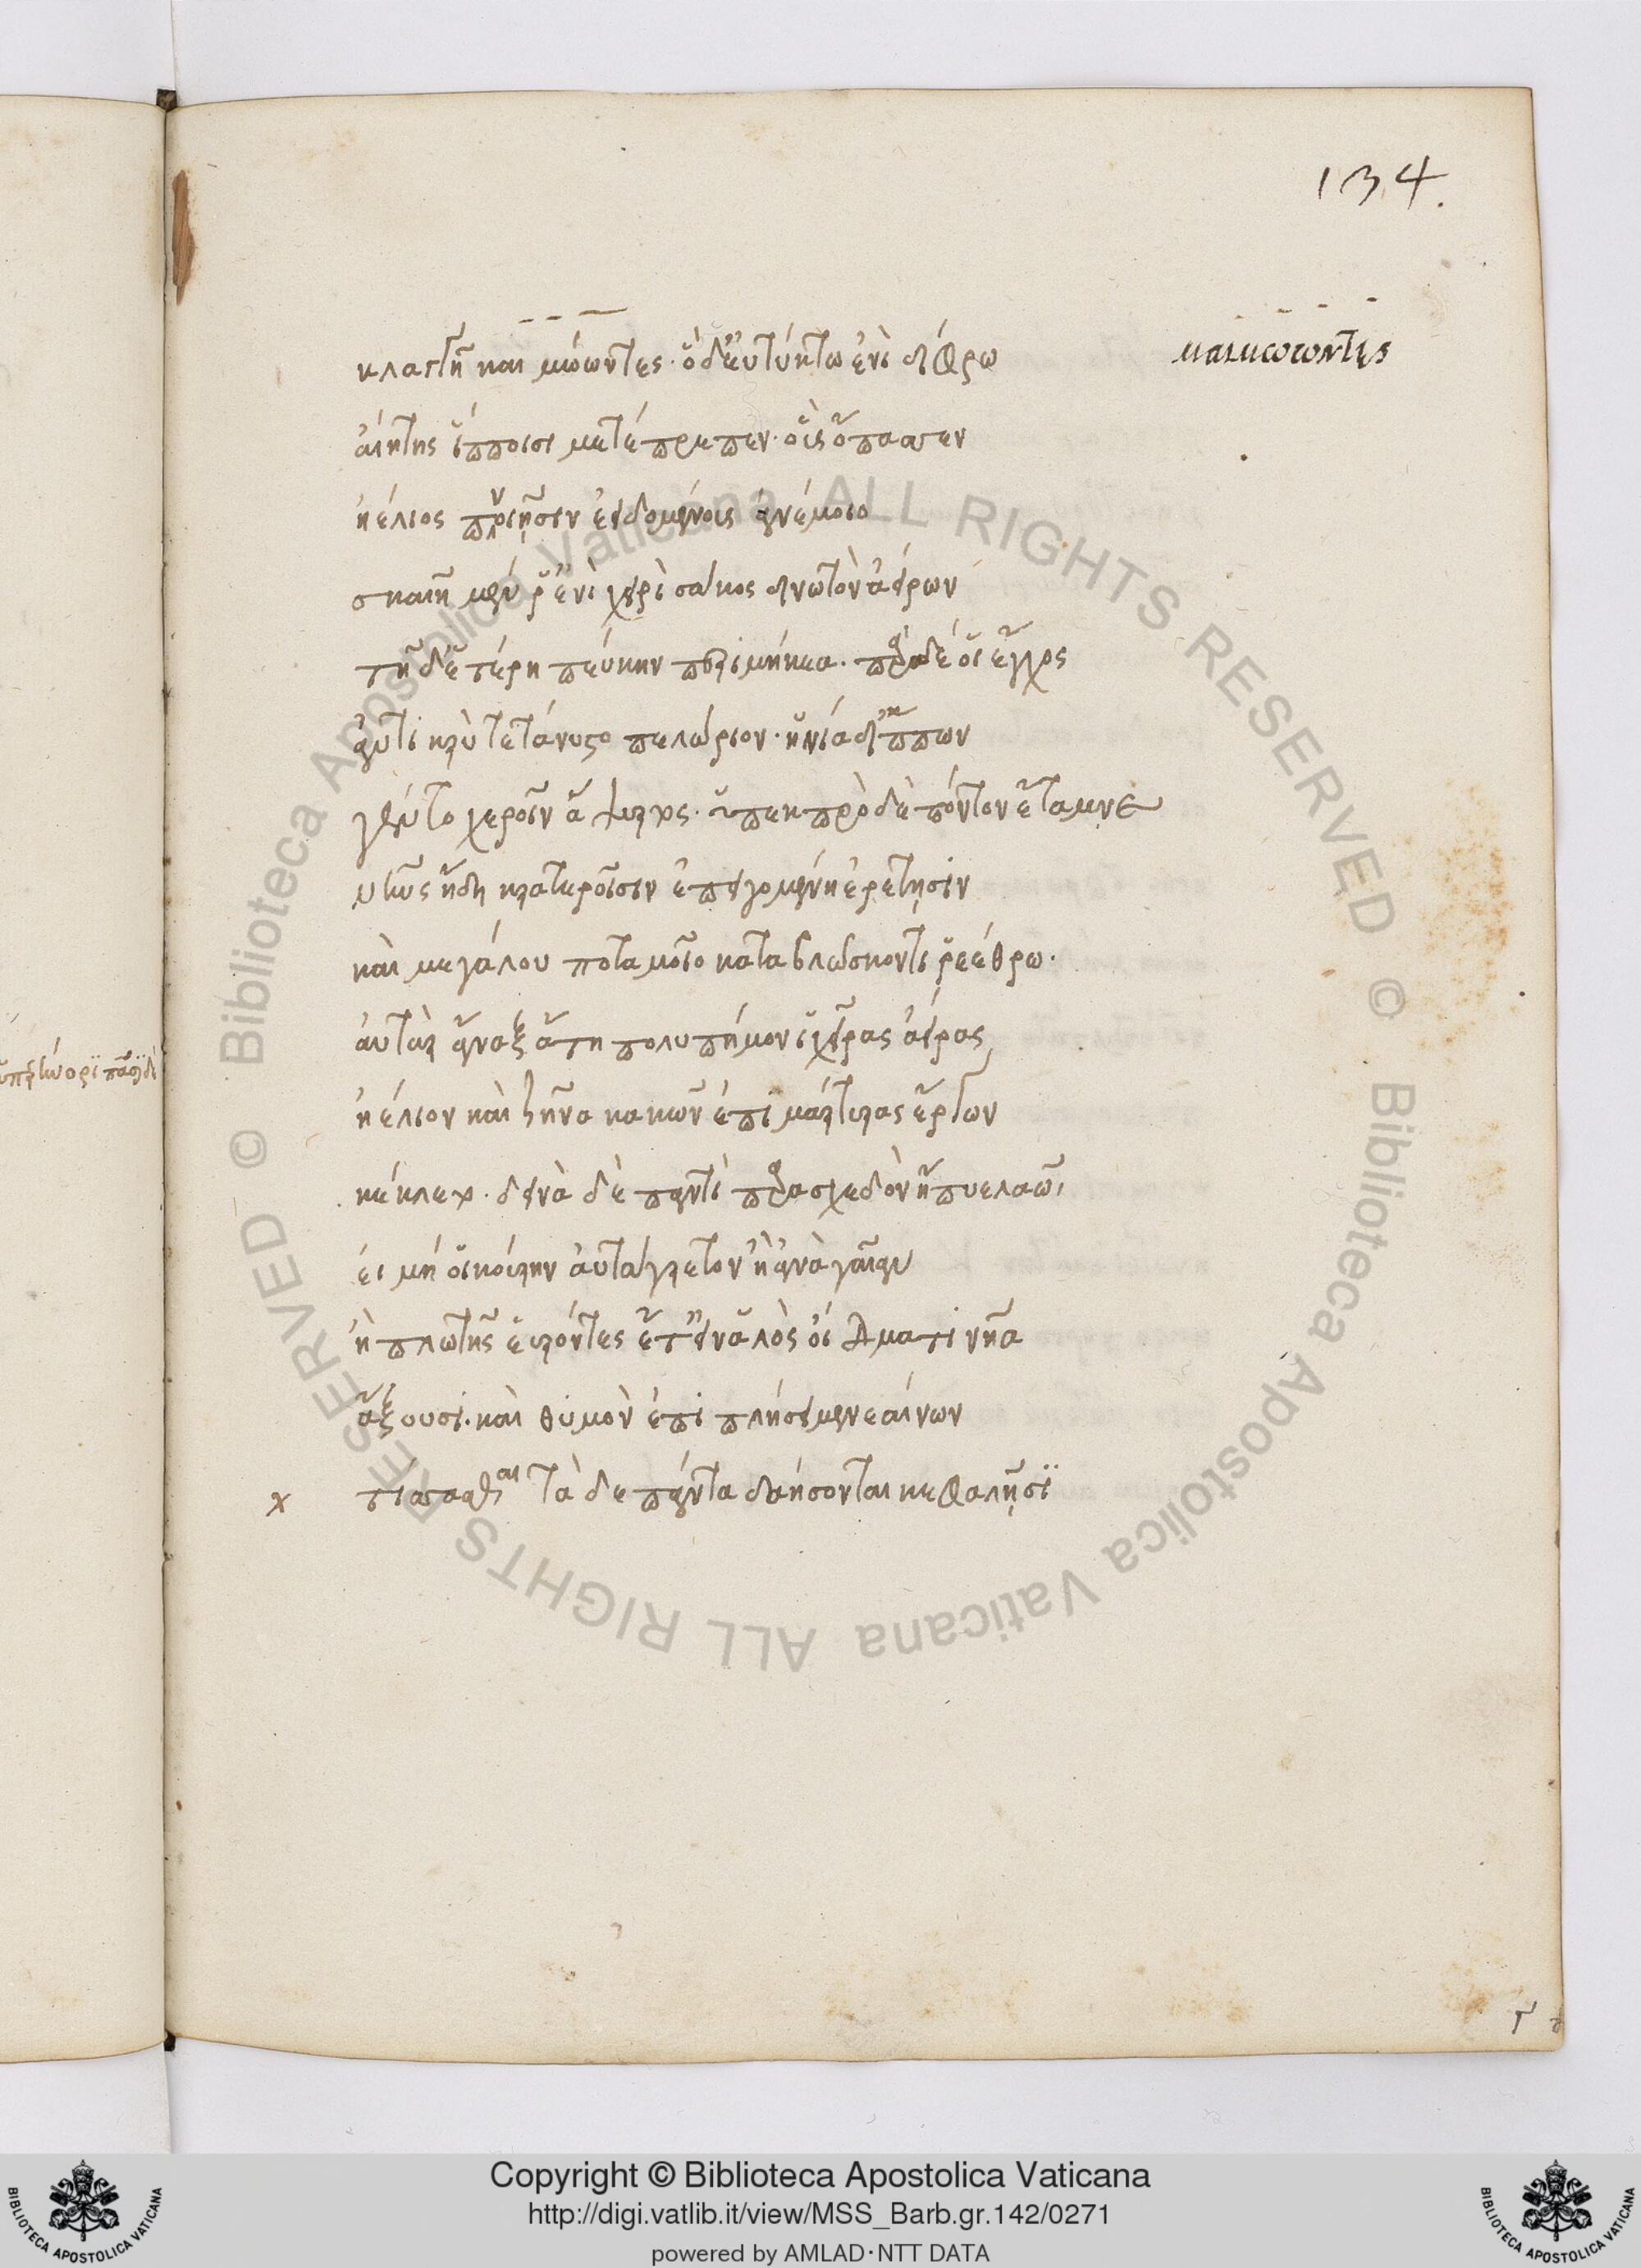 134.
κλαγγῆ και μώωντες· ὁ δ' ἐυτύκτω ἐνὶ δίφρω
μαιμώωντες
ἀιήτης ἵπποισι μετέπρεπεν· οἵς ὄπασσεν
ἠέλιος πνοιῇσιν ἐειδομένοις ἀνέμοιο
σκαιῆ μέν ῥ' ἐνὶ χειρὶ σάκος δινωτὸν ἀείρων
τῆ δ' ἑτέρη πεύκην περιμήκεα. πὰρ δέ ὁι ἔγχος
ἀντικρὺ τετάνυστο πελώριον· ἡνία δ' ἵππων
γέντο χεροῖν ἄψυρτος· ὕπεκπρὸ δὲ πόντον ἔταμνε
νηῦς ἤδη κρατεροῖσιν ἐπειγομένη ἐρέτησιν
καὶ μεγάλου ποταμοῖο καταβλώσκοντι ῥεέθρω·
ἀυτὰρ ἄναξ ἄτη πολυπήμονι χεῖρας ἀείρας
ἠέλιον καὶ ζῆνα κακῶν ἐπιμάρτυρας ἔργων
κέκλετο· δεινὰ δὲ παντὶ παρασχεδὸν ἤπυε λαῶ
ἐι μή ὁι κούρην ἀυτάγρετον ἢ ἀνὰ γαῖαν
ἢ πλωτῆς ἑυρόντες ἔτ' εἰν ἁλὸς ὀίδματι νῆα
ἄξουσι· καὶ θυμὸν ἐπιπλήσει μενεαίνων
χ τίσασθαι τὰ δε πάντα δαήσονται κεφαλῇσϊ
Copyright © Biblioteca Apostolica Vaticana
http://digi.vatlib.it/view/MSS_Barb.gr.142/0271
powered by AMLAD·NTT DATA
© Biblioteca Apostolica Vaticana ALL RIGHTS RESERVED © Biblioteca Apostolica Vaticana ALL RIGHTS RESERVED
BIBLIOTECA APOSTOLICA VATICANA
BIBLIOTECA APOSTOLICA VATICANA